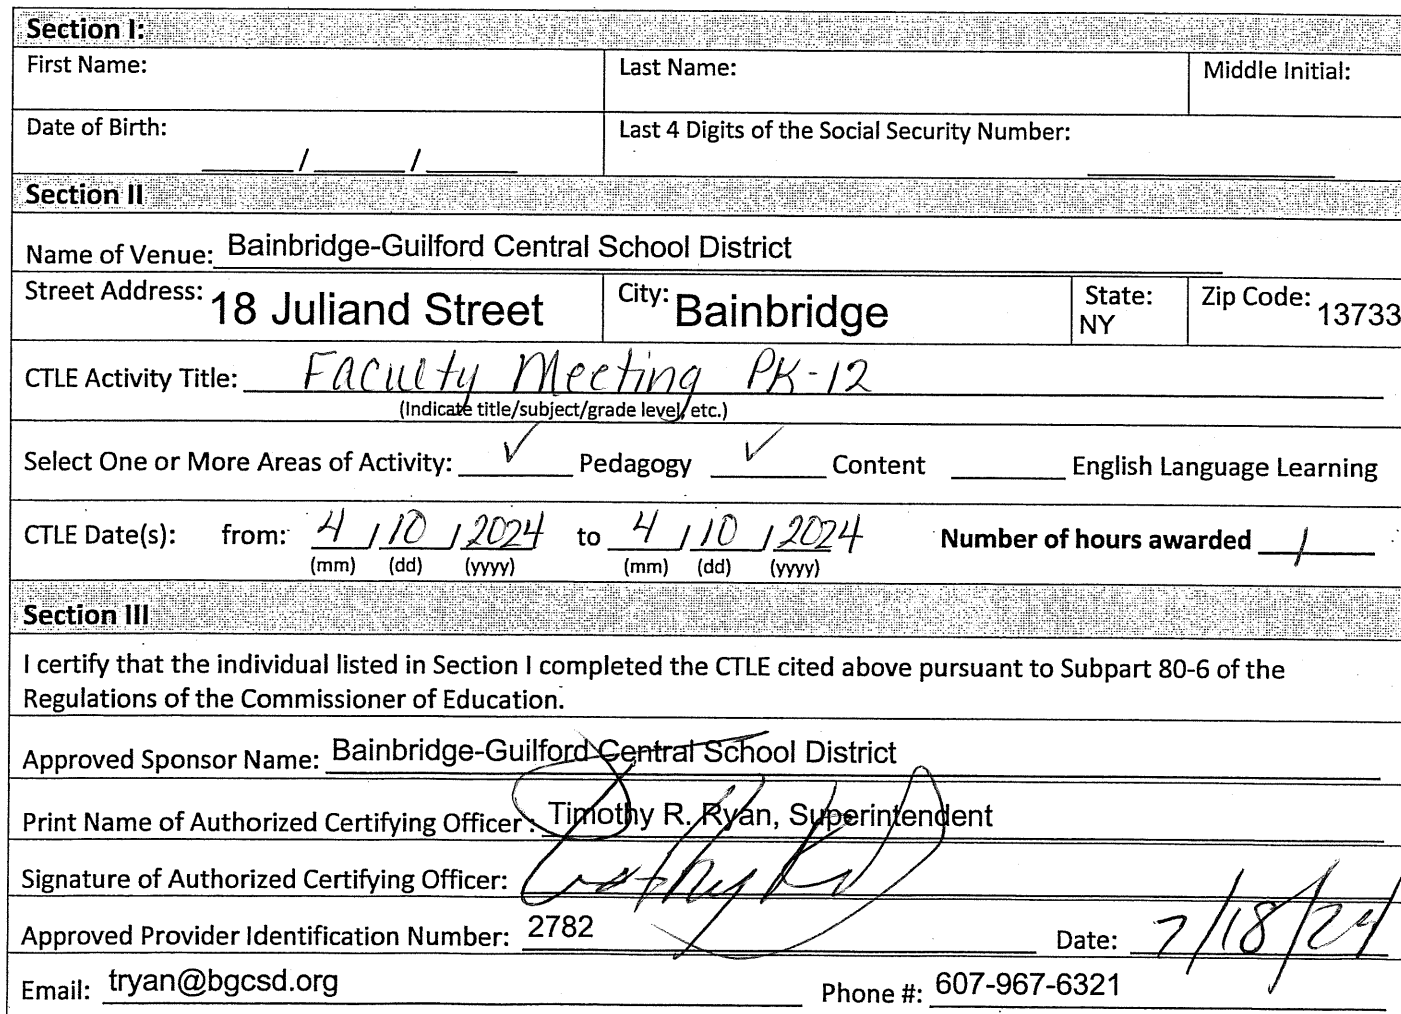 Section I:
First Name: Last Name: Middle Initial:
Date of Birth: ____/____/____ Last 4 Digits of the Social Security Number: ____
Section II
Name of Venue: Bainbridge-Guilford Central School District
Street Address: 18 Juliand Street City: Bainbridge State: NY Zip Code: 13733
CTLE Activity Title: Faculty Meeting PK-12
(Indicate title/subject/grade level, etc.)
Select One or More Areas of Activity: ✓ Pedagogy ✓ Content ____ English Language Learning
CTLE Date(s): from: 4/10/2024 to 4/10/2024 Number of hours awarded 1
(mm) (dd) (yyyy) (mm) (dd) (yyyy)
Section III
I certify that the individual listed in Section I completed the CTLE cited above pursuant to Subpart 80-6 of the
Regulations of the Commissioner of Education.
Approved Sponsor Name: Bainbridge-Guilford Central School District
Print Name of Authorized Certifying Officer: Timothy R. Ryan, Superintendent
Signature of Authorized Certifying Officer:
Approved Provider Identification Number: 2782 Date: 7/18/24
Email: tryan@bgcsd.org Phone #: 607-967-6321